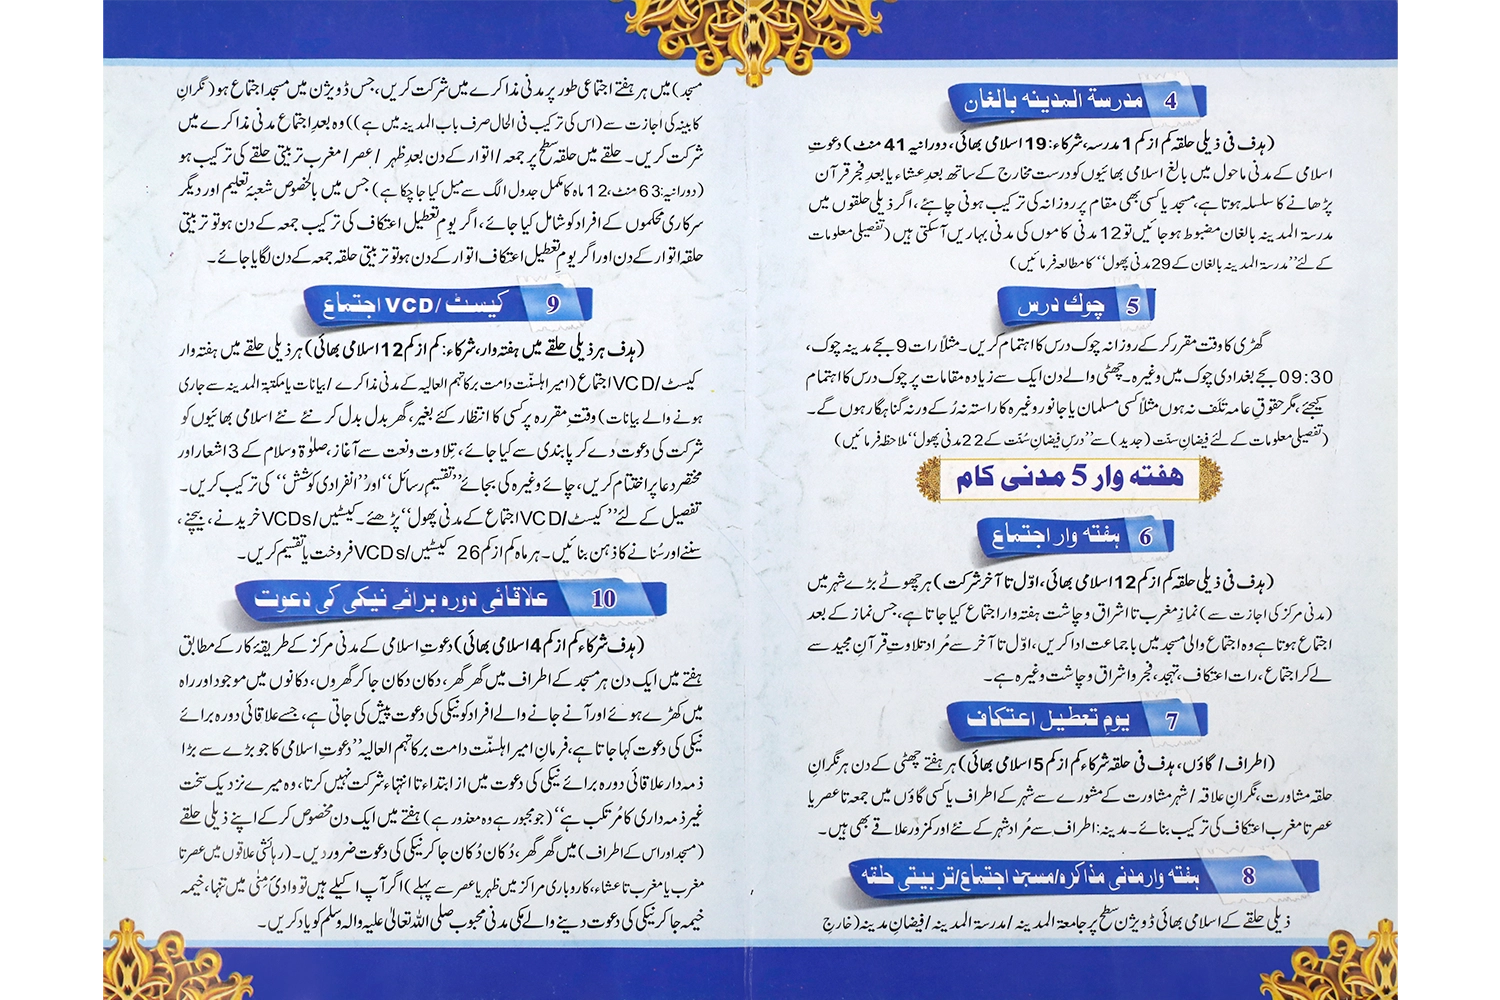 4 مدرسة المدینه بالغان
(ہدف فی ذیلی حلقہ کم از کم 1 مدرسہ، شرکاء: 19 اسلامی بھائی، دورانیہ 41 منٹ) دعوتِ
اسلامی کے مدنی ماحول میں بالغ اسلامی بھائیوں کو درست مخارج کے ساتھ بعدِ عشاء یا بعدِ فجر قرآن
پڑھانے کا سلسلہ ہوتا ہے، مسجد یا کسی بھی مقام پر روزانہ کی ترکیب ہونی چاہئے، اگر ذیلی حلقوں میں
مدرسۃ المدینہ بالغان مضبوط ہو جائیں تو 12 مدنی کاموں کی مدنی بہاریں آسکتی ہیں (تفصیلی معلومات
کے لئے ”مدرسۃ المدینہ بالغان کے 29 مدنی پھول“ کا مطالعہ فرمائیں)
5 چوك درس
گھڑی کا وقت مقرر کر کے روزانہ چوک درس کا اہتمام کریں۔ مثلاً رات 9 بجے مدینہ چوک،
09:30 بجے بغدادی چوک میں وغیرہ۔ چھٹی والے دن ایک سے زیادہ مقامات پر چوک درس کا اہتمام
کیجئے، مگر حقوقِ عامہ تلف نہ ہوں مثلاً کسی مسلمان یا جانور وغیرہ کا راستہ نہ رُکے ورنہ گناہگار ہوں گے۔
(تفصیلی معلومات کے لئے فیضانِ سنت (جدید) سے ”درسِ فیضانِ سُنّت کے 22 مدنی پھول“ ملاحظہ فرمائیں)
هفته وار 5 مدنی کام
6 ہفته وار اجتماع
(ہدف فی ذیلی حلقہ کم از کم 12 اسلامی بھائی، اوّل تا آخر شرکت) ہر چھوٹے بڑے شہر میں
(مدنی مرکز کی اجازت سے) نمازِ مغرب تا اشراق و چاشت ہفتہ وار اجتماع کیا جاتا ہے، جس نماز کے بعد
اجتماع ہوتا ہے وہ اجتماع والی مسجد میں باجماعت ادا کریں، اوّل تا آخر سے مُراد تلاوتِ قرآنِ مجید سے
لے کر اجتماع، رات اعتکاف، تہجد، فجر و اشراق و چاشت وغیرہ ہے۔
7 یومِ تعطیل اعتکاف
(اطراف / گاؤں، ہدف فی حلقہ شرکاء کم از کم 5 اسلامی بھائی) ہر ہفتے چھٹی کے دن ہر نگرانِ
حلقہ مشاورت، نگرانِ علاقہ / شہر مشاورت کے مشورے سے شہر کے اطراف یا کسی گاؤں میں جمعہ تا عصر یا
عصر تا مغرب اعتکاف کی ترکیب بنائے۔ مدینہ: اطراف سے مُراد شہر کے نئے اور کمزور علاقے بھی ہیں۔
8 ہفته وار مدنی مذاکرہ/مسجد اجتماع/تربیتی حلقه
ذیلی حلقے کے اسلامی بھائی ڈویژن سطح پر جامعۃ المدینہ / مدرسۃ المدینہ / فیضانِ مدینہ (خارج
مسجد) میں ہر ہفتے اجتماعی طور پر مدنی مذاکرے میں شرکت کریں، جس ڈویژن میں مسجد اجتماع ہو (نگرانِ
کابینہ کی اجازت سے (اس کی ترکیب فی الحال صرف باب المدینہ میں ہے)) وہ بعدِ اجتماع مدنی مذاکرے میں
شرکت کریں۔ حلقے میں حلقہ سطح پر جمعہ / اتوار کے دن بعدِ ظہر / عصر / مغرب تربیتی حلقے کی ترکیب ہو
(دورانیہ: 63 منٹ، 12 ماہ کا مکمل جدول الگ سے میل کیا جا چکا ہے) جس میں بالخصوص شعبۂ تعلیم اور دیگر
سرکاری محکموں کے افراد کو شامل کیا جائے، اگر یومِ تعطیل اعتکاف کی ترکیب جمعہ کے دن ہو تو تربیتی
حلقہ اتوار کے دن اور اگر یومِ تعطیل اعتکاف اتوار کے دن ہو تو تربیتی حلقہ جمعہ کے دن لگایا جائے۔
9 کیسٹ/VCD اجتماع
(ہدف ہر ذیلی حلقے میں ہفتہ وار، شرکاء: کم از کم 12 اسلامی بھائی) ہر ذیلی حلقے میں ہفتہ وار
کیسٹ/VCD اجتماع (امیر اہلسنّت دامت برکاتہم العالیہ کے مدنی مذاکرے / بیانات یا مکتبۃ المدینہ سے جاری
ہونے والے بیانات) وقتِ مقررہ پر کسی کا انتظار کئے بغیر، گھر بدل بدل کر نئے نئے اسلامی بھائیوں کو
شرکت کی دعوت دے کر پابندی سے کیا جائے، تِلاوت و نعت سے آغاز، صلوٰۃ و سلام کے 3 اشعار اور
مختصر دعا پر اختتام کریں، چائے وغیرہ کی بجائے ”تقسیمِ رسائل“ اور ”انفرادی کوشش“ کی ترکیب کریں۔
تفصیل کے لئے ”کیسٹ/VCD اجتماع کے مدنی پھول“ پڑھئے۔ کیسٹیں/VCDs خریدنے، بیچنے،
سننے اور سُنانے کا ذہن بنائیں۔ ہر ماہ کم از کم 26 کیسٹیں/VCDs فروخت یا تقسیم کریں۔
10 علاقائی دورہ برائے نیکی کی دعوت
(ہدف شرکاء کم از کم 4 اسلامی بھائی) دعوتِ اسلامی کے مدنی مرکز کے طریقۂ کار کے مطابق
ہفتے میں ایک دن ہر مسجد کے اطراف میں گھر گھر، دکان دکان جا کر گھروں، دکانوں میں موجود اور راہ
میں کھڑے ہوئے اور آنے جانے والے افراد کو نیکی کی دعوت پیش کی جاتی ہے، جسے علاقائی دورہ برائے
نیکی کی دعوت کہا جاتا ہے، فرمانِ امیر اہلسنّت دامت برکاتہم العالیہ ”دعوتِ اسلامی کا جو بڑے سے بڑا
ذمہ دار علاقائی دورہ برائے نیکی کی دعوت میں از ابتداء تا انتہاء شرکت نہیں کرتا، وہ میرے نزدیک سخت
غیر ذمہ داری کا مُرتکب ہے“ (جو مجبور ہے وہ معذور ہے) ہفتے میں ایک دن مخصوص کر کے اپنے ذیلی حلقے
(مسجد اور اس کے اطراف) میں گھر گھر، دُکان دُکان جا کر نیکی کی دعوت ضرور دیں۔ (رہائشی علاقوں میں عصر تا
مغرب یا مغرب تا عشاء، کاروباری مراکز میں ظہر یا عصر سے پہلے) اگر آپ اکیلے ہیں تو وادیٔ مِنٰی میں تنہا، خیمہ
خیمہ جا کر نیکی کی دعوت دینے والے مکی مدنی محبوب صلی اللہ تعالیٰ علیہ والہ وسلم کو یاد کریں۔